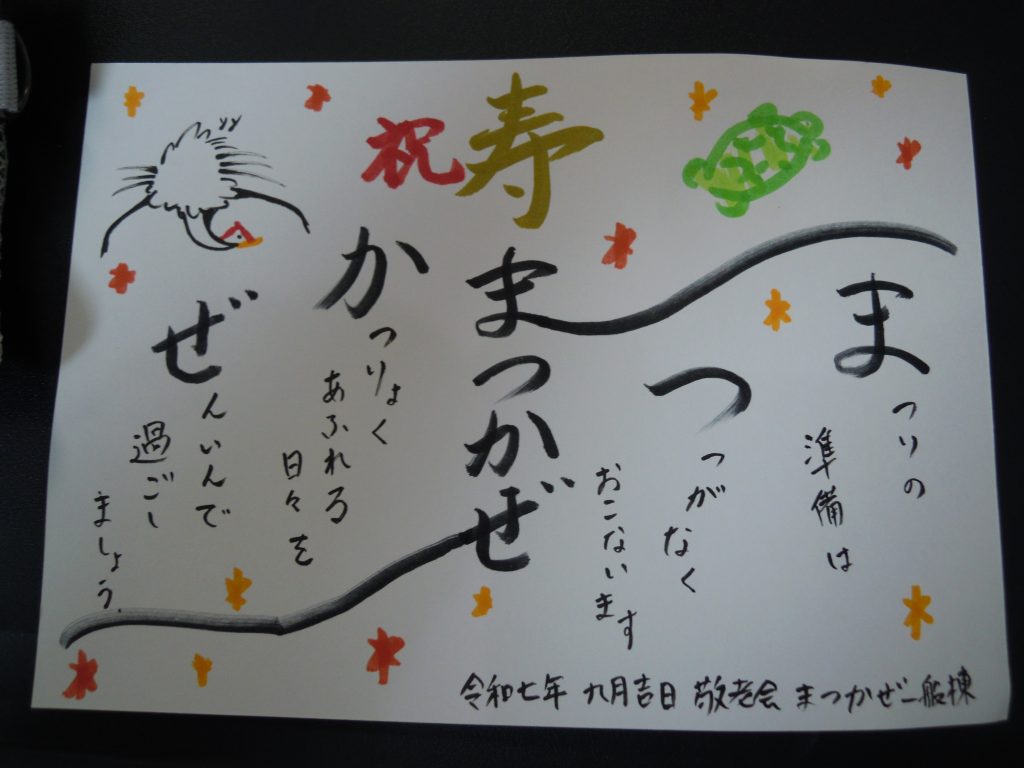 祝寿
まつかぜ
まつりの
準備は
つつがなく
おこないます
かつりょく
あふれる
日々を
ぜんいんで
過ごし
ましょう。
令和七年 九月吉日 敬老会 まつかぜ一般棟